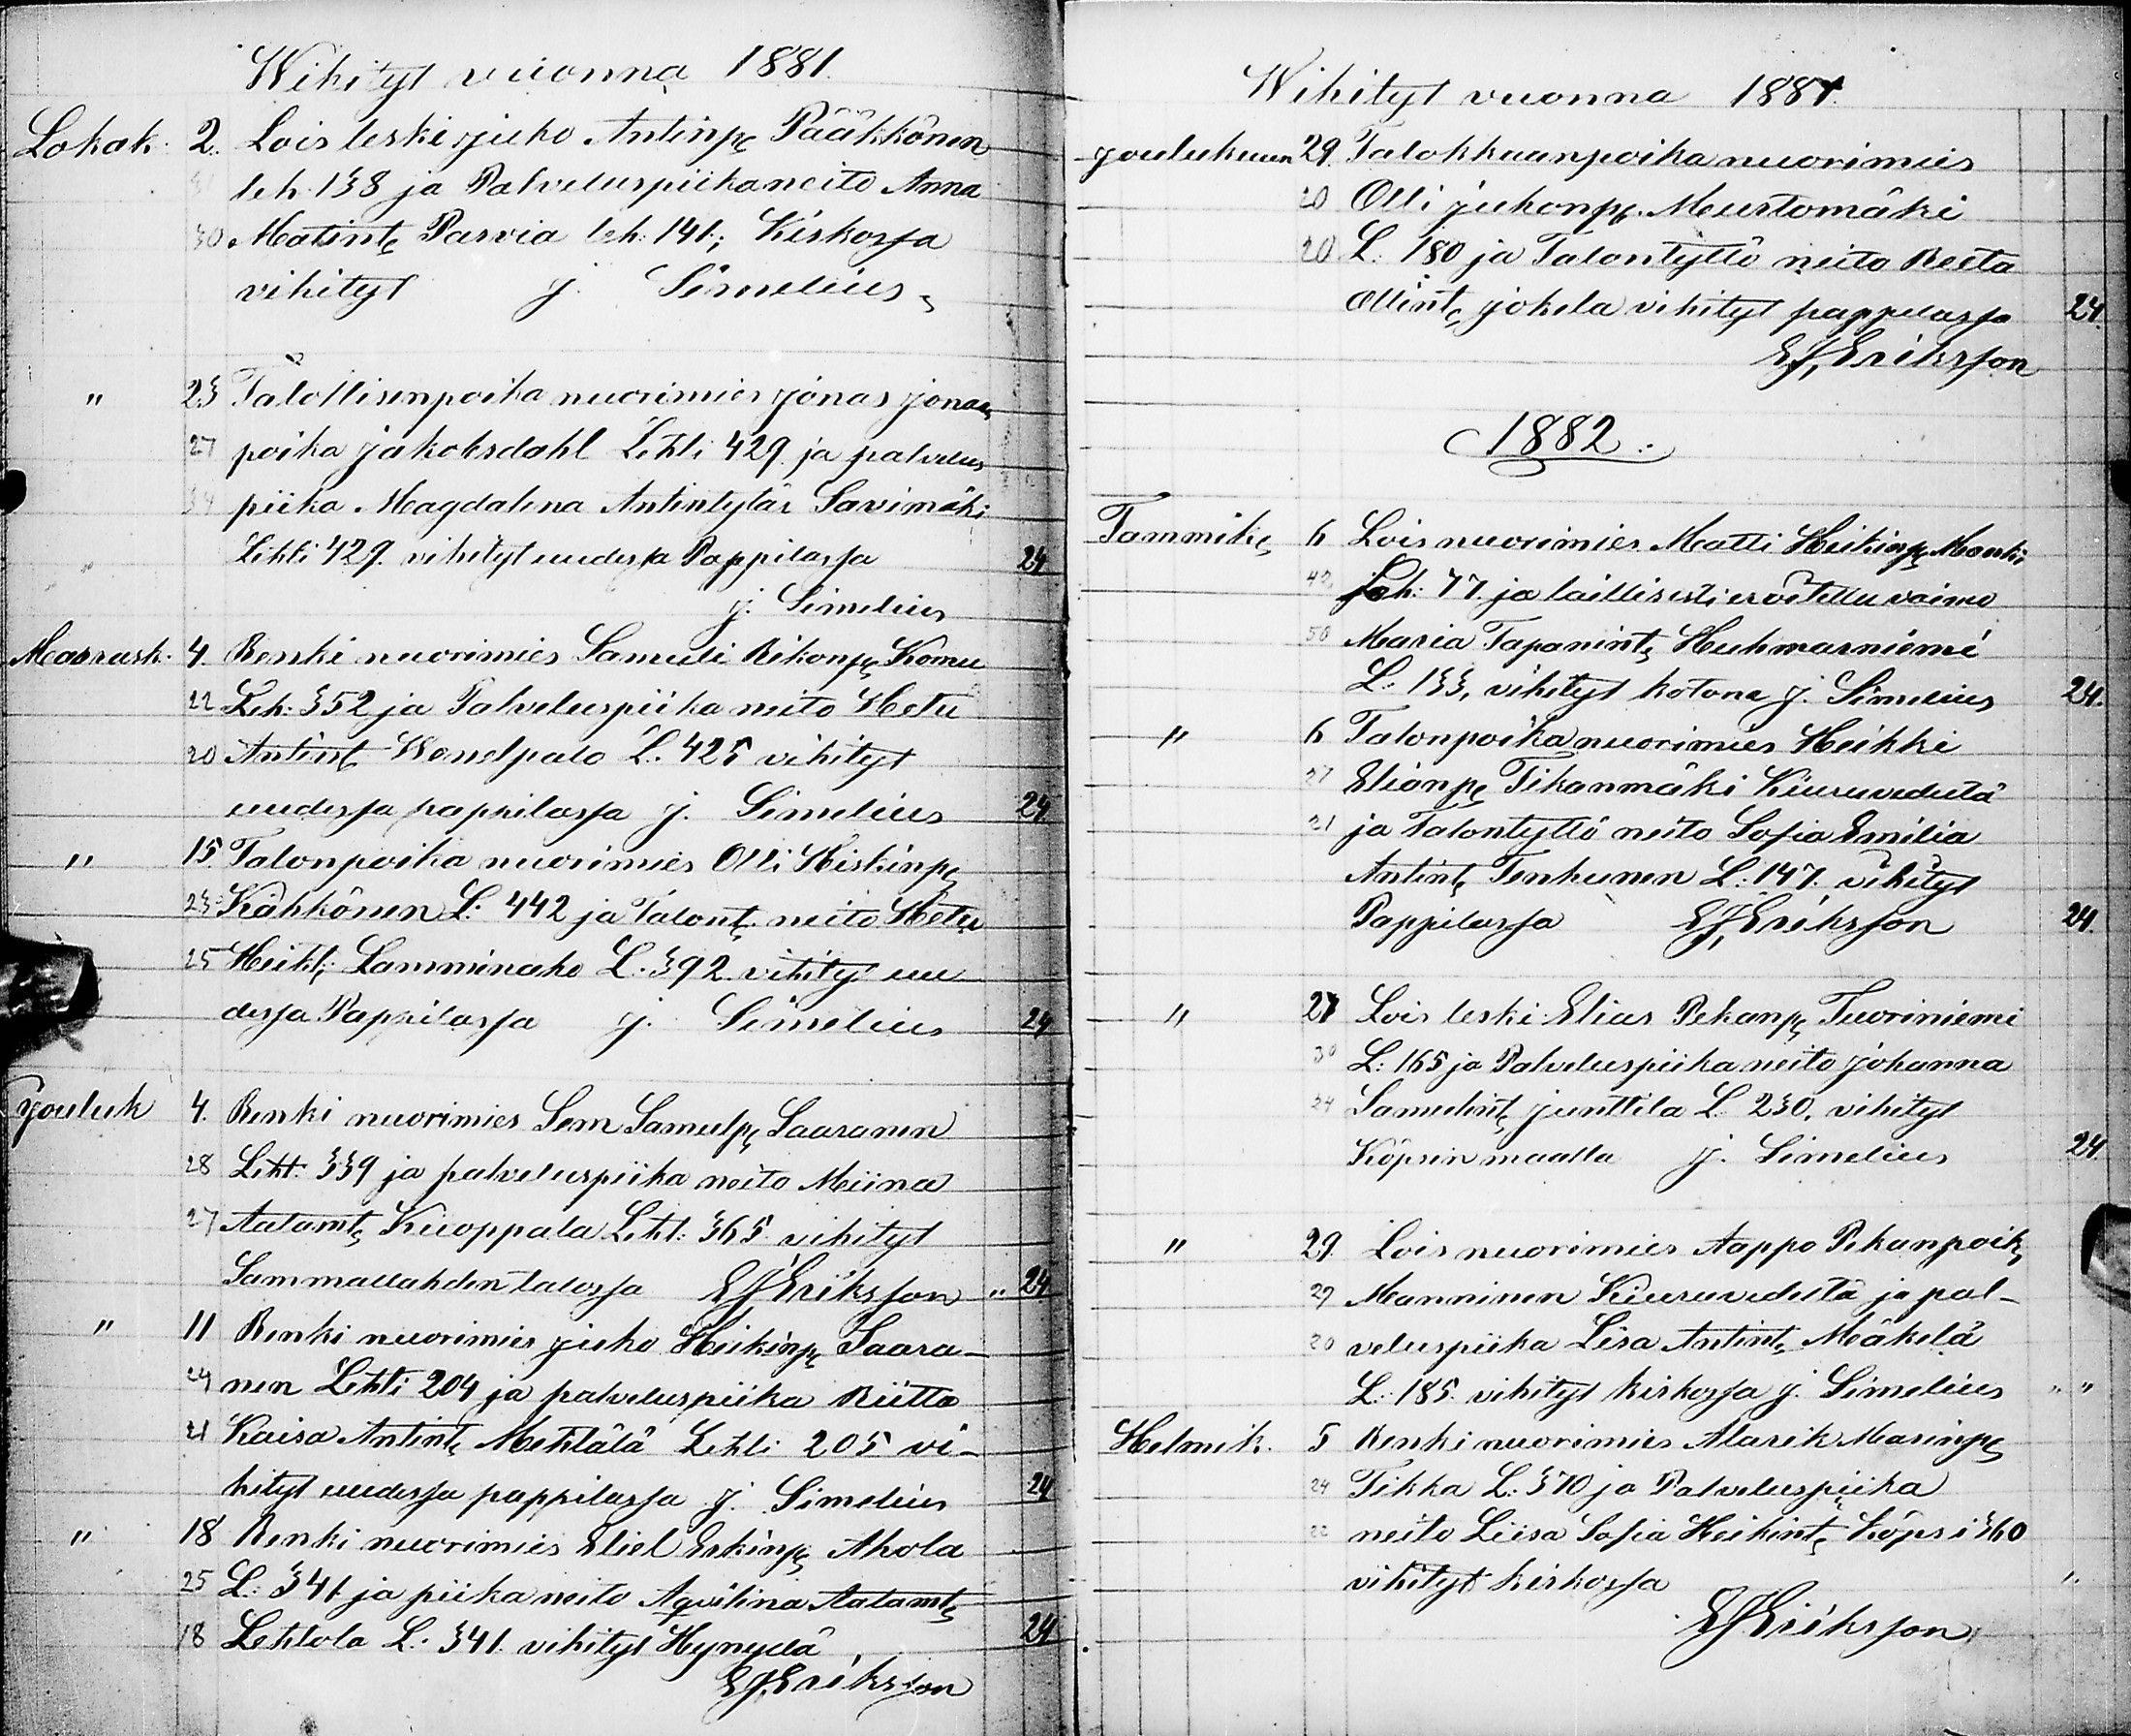 Wihityt vuonna 1881.
Lokak. 2. Lois leski Juho Antinp. Pääkkönen
leh. 138 ja Palveluspiika neito Anna
30 Matint. Parvia leh. 141; Kirkossa
vihityt J. Simelius.
" 23 Talollisenpoika nuorimies Jonas Jonaan
27 poika Jakobsdahl Lehti 429. ja palvelus
34 piika Magdalena Antintytär Savimäki
Lehti 429. vihityt uudessa Pappilassa 24
J. Simelius
Marrask. 4. Renki nuorimies Samuli Rikonp. Komu
22 Leh: 352 ja Palveluspiika neito Hetu
20 Antint. Wenelpalo L. 425 vihityt
uudessa pappilassa J. Simelius 24
" 15. Talonpoika nuorimies Olli Hiskinp.
23 Kähkönen L: 442 ja Talont. neito Hetu
25 Heikt. Lamminaho L. 392 vihityt uu
dessa Pappilassa J. Simelius 24
Jouluk 4. Renki nuorimies Sem Samulp. Saaranen
28 Leht: 339 ja palveluspiika neito Miina
27 Aatamt. Kuoppala Leht: 365 vihityt
Sammallahden talossa EJ, Eriksson " 24
" 11 Renki nuorimies Juho Heikinp. Saara-
24 nen Lehti 204 ja palveluspiika Riitta
21 Kaisa Antint. Mehtälä Lehti 205 vi-
hityt uudessa pappilassa J. Simelius 24
" 18 Renki nuorimies Eliel Erkinp. Ahola
25 L: 341 ja piika neito Aqvilina Aatamt.
18 Lehtola L: 341. vihityt Hynyllä 24
EJ, Eriksson
Wihityt vuonna 1881.
Joulukuun 29. Talokkaanpoika nuorimies
20 Olli Juhonp. Mustomäki
20 L. 180 ja Talontyttö neito Reeta
Ollint. Jokela vihityt pappilassa 24.
EJ, Eriksson
1882.
Tammik. 6 Lois nuorimies Matti Heikinp. Manki
42 Leh: 77 ja laillisesti eroitettu vaimo
50 Maria Tapanint. Huhmarniemi
L: 133, vihityt kotona J. Simelius 24.
" 6 Talonpoika nuorimies Heikki
27 Elianp. Tikanmäki Kiuruvedeltä
21 ja Talontyttö neito Sofia Emilia
Antint. Tenhunen L: 147. vihityt
Pappilassa EJ, Eriksson 24.
" 27 Lois leski Elias Pekanp. Tuoriniemi
30 L: 165 ja Palveluspiika neito Johanna
24 Samulint. Junttila L 230, vihityt
Köpsin maalla J. Simelius 24.
" 29. Lois nuorimies Aappo Pekanpoik.
29 Manninen Kiuruvedeltä ja pal-
20 veluspiika Lisa Antint. Mäkelä
L: 185. vihityt kirkossa J. Simelius " "
Helmik. 5 Renki nuorimies Alarik Marinp.
24 Tikka L: 370 ja Palveluspiika
22 neito Liisa Sofia Heikint. Köpsi 360
vihityt kirkossa "
EJ Eriksson